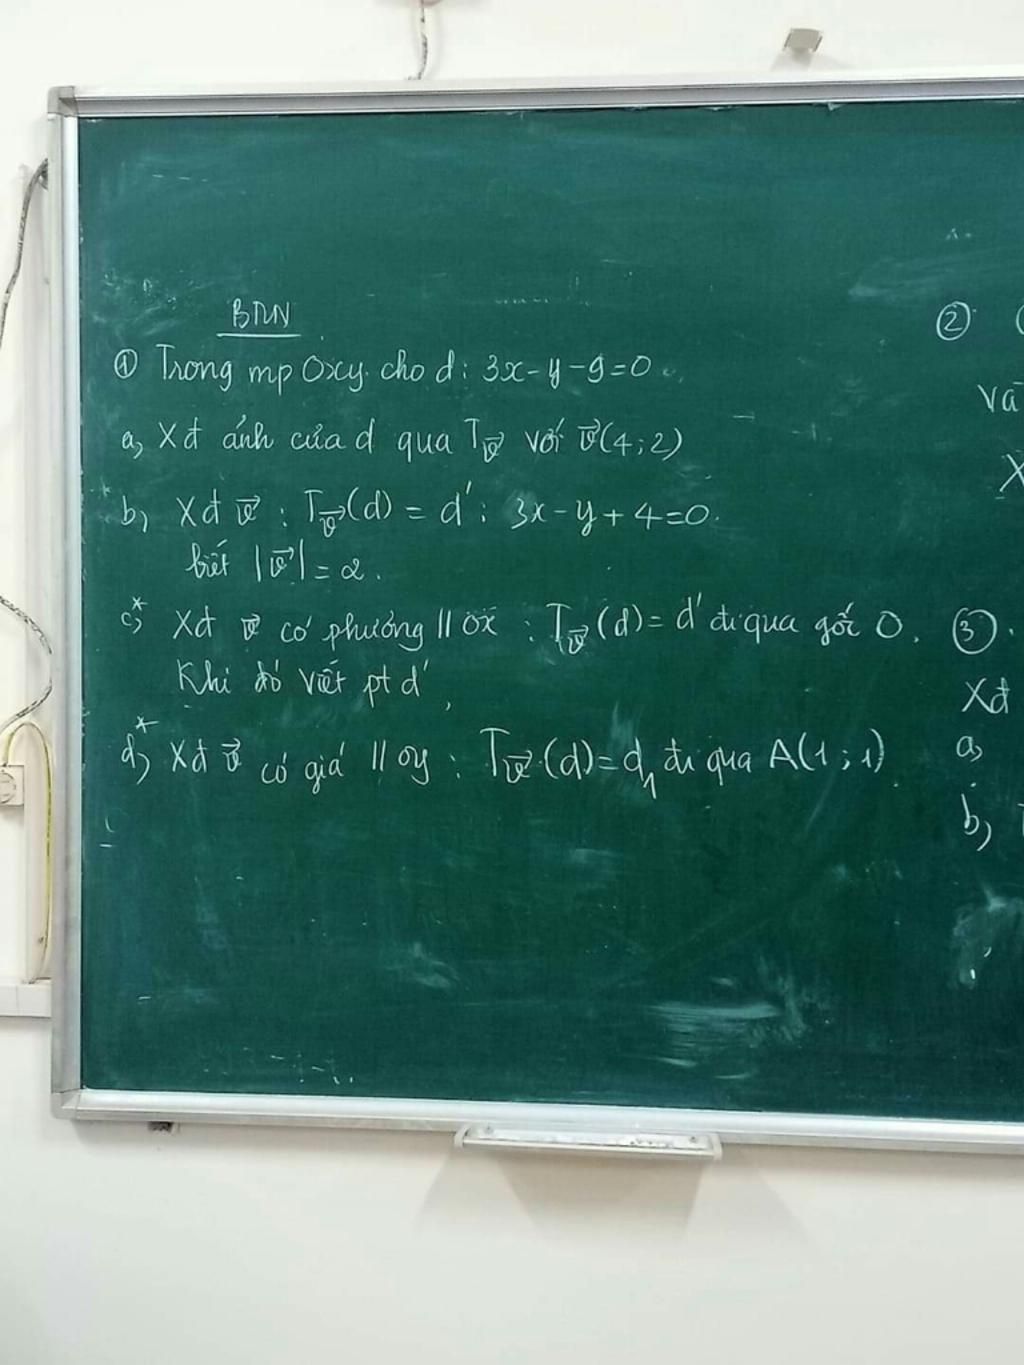 BTVN
① Trong mp Oxy cho d: 3x-y-9=0
②
a, Xđ ảnh của d qua T_v⃗ với v⃗(4;2)
và
b, Xđ v⃗ : T_v⃗(d) = d': 3x-y+4=0.
X
biết |v⃗|=2.
c,* Xđ v⃗ có phương // Ox : T_v⃗(d) = d' đi qua gốc O.
③.
Khi đó viết pt d'
Xđ
d,* Xđ v⃗ có giá // oy : T_v⃗(d)=d₁ đi qua A(1;1)
a,
b,